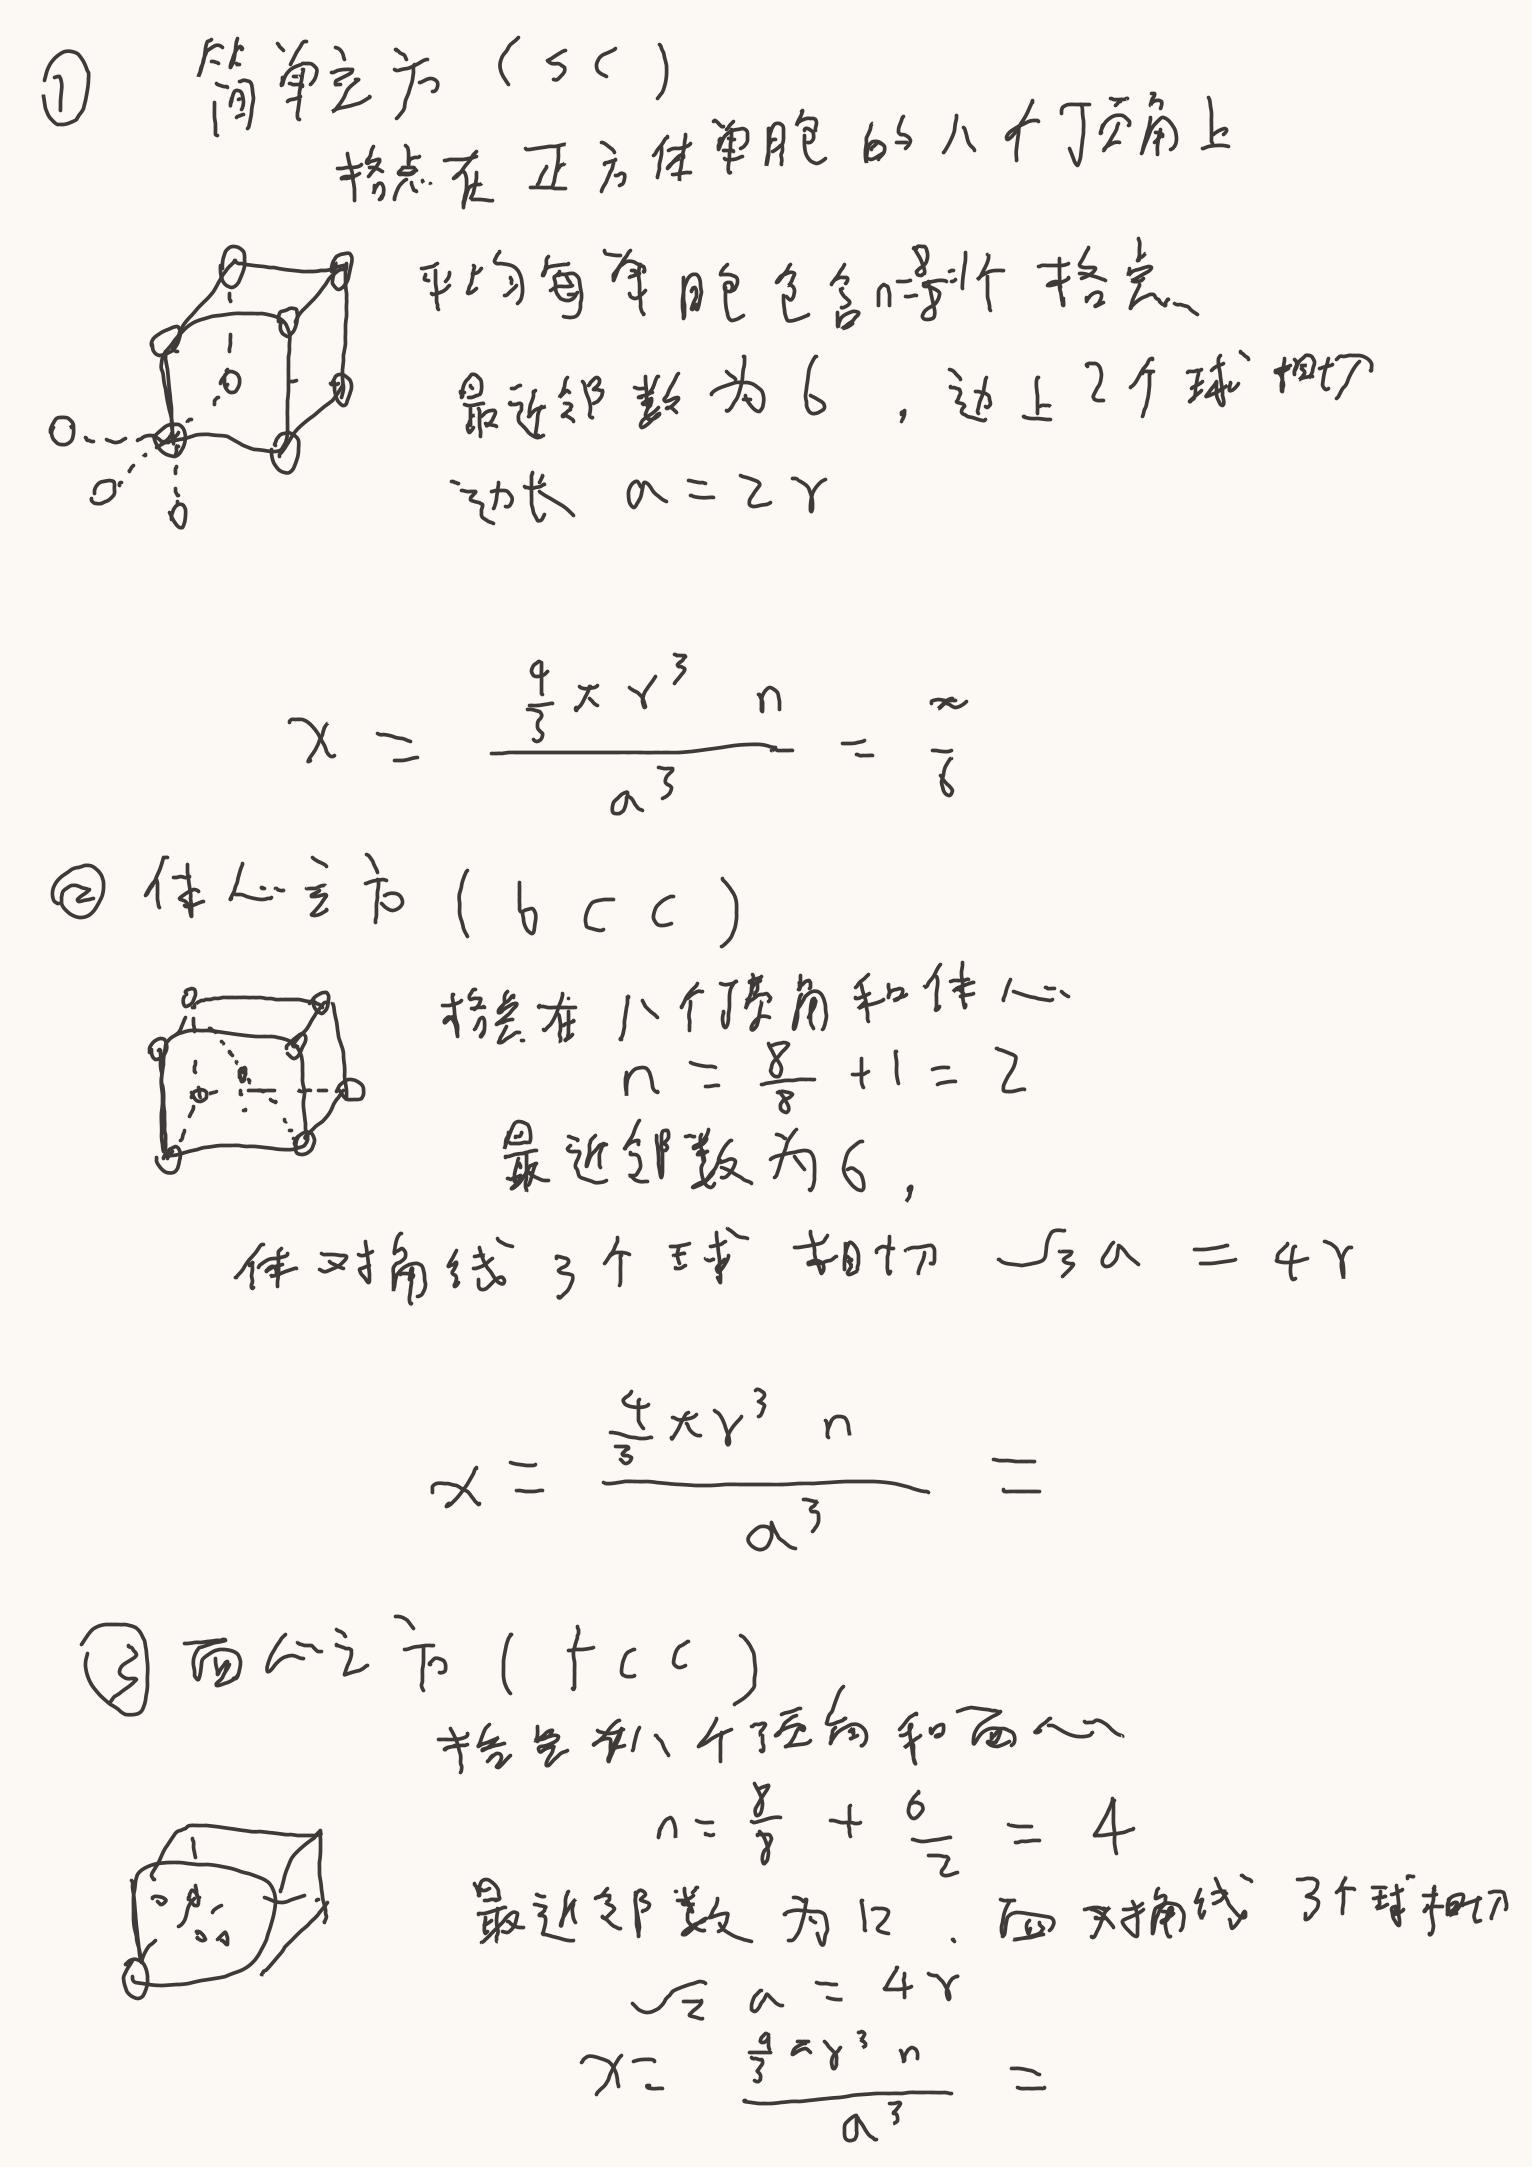 ① 简单立方 (sc)
格点在正方体单胞的八个顶角上
平均每单胞包含n=8/8=1个格点
最近邻数为6，边上2个球相切
边长 a=2r
x = (4/3 π r³ n)/a³ = π/6
② 体心立方 (bcc)
格点在八个顶角和体心
n = 8/8 + 1 = 2
最近邻数为6，
体对角线3个球相切 √3 a = 4r
x = (4/3 π r³ n)/a³ =
③ 面心立方 (fcc)
格点在八个顶角和面心
n = 8/8 + 6/2 = 4
最近邻数为12. 面对角线3个球相切
√2 a = 4r
x = (4/3 π r³ n)/a³ =